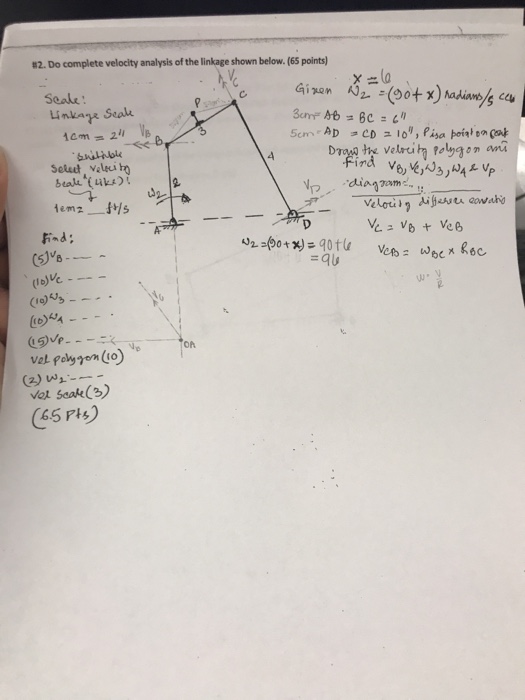 #2. Do complete velocity analysis of the linkage shown below. (65 points)
Scale:
Linkage Scale
1cm = 2"
suitable
Select velocity
Scale (like)!
1cm = __ ft/s
Find:
(5) VB - - - -
(10) VC - - - -
(10) ω3 - - - -
(10) ω4 - - - -
(15) VP - - - -
Vel polygon (10)
(2) ω2 - - -
Vel Scale (3)
(65 Pts)
VC
C
P
3
VB
B
2
ω2
A
4
VP
D
VB
VB
OA
x = 6
Given ω2 = (90 + x) radians/s ccw
3cm AB = BC = 6"
5cm AD = CD = 10", P is a point on
Draw the velocity polygon and
find VB, VC, ω3, ω4 & VP.
diagram
Velocity difference
VC = VB + VCB
VCB = ωBC × RBC
ω = V/R
ω2 = (90 + x) = 90 + 6
= 96